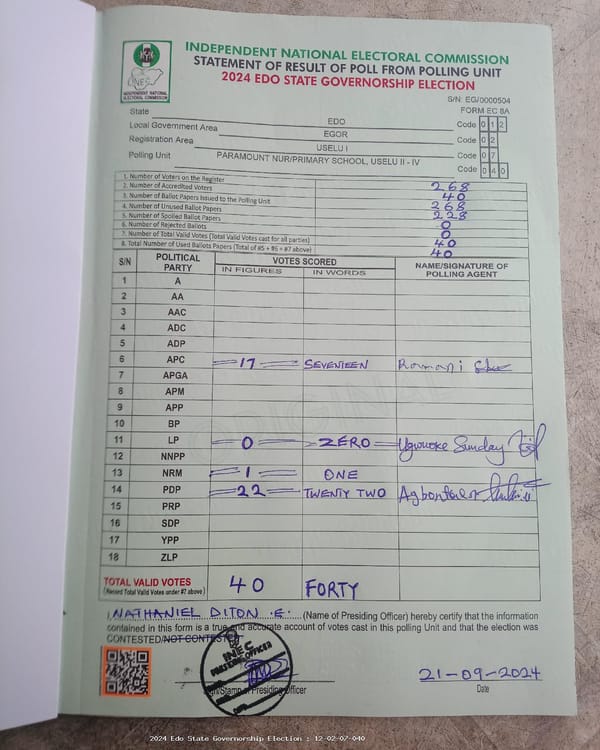 INDEPENDENT NATIONAL ELECTORAL COMMISSION
STATEMENT OF RESULT OF POLL FROM POLLING UNIT
2024 EDO STATE GOVERNORSHIP ELECTION
INEC
INDEPENDENT NATIONAL
ELECTORAL COMMISSION
S/N: EG/0000504
FORM EC 8A
State EDO Code 0 1 2
Local Government Area EGOR Code 0 2
Registration Area USELU I Code 0 7
Polling Unit PARAMOUNT NUR/PRIMARY SCHOOL, USELU II - IV Code 0 4 0
1. Number of Voters on the Register 268
2. Number of Accredited Voters 40
3. Number of Ballot Papers Issued to the Polling Unit 268
4. Number of Unused Ballot Papers 228
5. Number of Spoiled Ballot Papers 0
6. Number of Rejected Ballots 0
7. Number of Total Valid Votes (Total Valid Votes cast for all parties) 40
8. Total Number of Used Ballots Papers (Total of #5 + #6 + #7 above) 40
S/N POLITICAL PARTY VOTES SCORED NAME/SIGNATURE OF POLLING AGENT
IN FIGURES IN WORDS
1 A
2 AA
3 AAC
4 ADC
5 ADP
6 APC 17 SEVENTEEN
7 APGA
8 APM
9 APP
10 BP
11 LP 0 ZERO Ugwuoke Sunday
12 NNPP
13 NRM 1 ONE
14 PDP 22 TWENTY TWO
15 PRP
16 SDP
17 YPP
18 ZLP
ORIGINAL
TOTAL VALID VOTES 40 FORTY
(Record Total Valid Votes under #7 above)
I, NATHANIEL DITON .E. (Name of Presiding Officer) hereby certify that the information
contained in this form is a true and accurate account of votes cast in this polling Unit and that the election was
CONTESTED/NOT CONTESTED
INEC
PRESIDING OFFICER
POLL
Sign/Stamp of Presiding Officer
21-09-2024
Date
2024 Edo State Governorship Election : 12-02-07-040